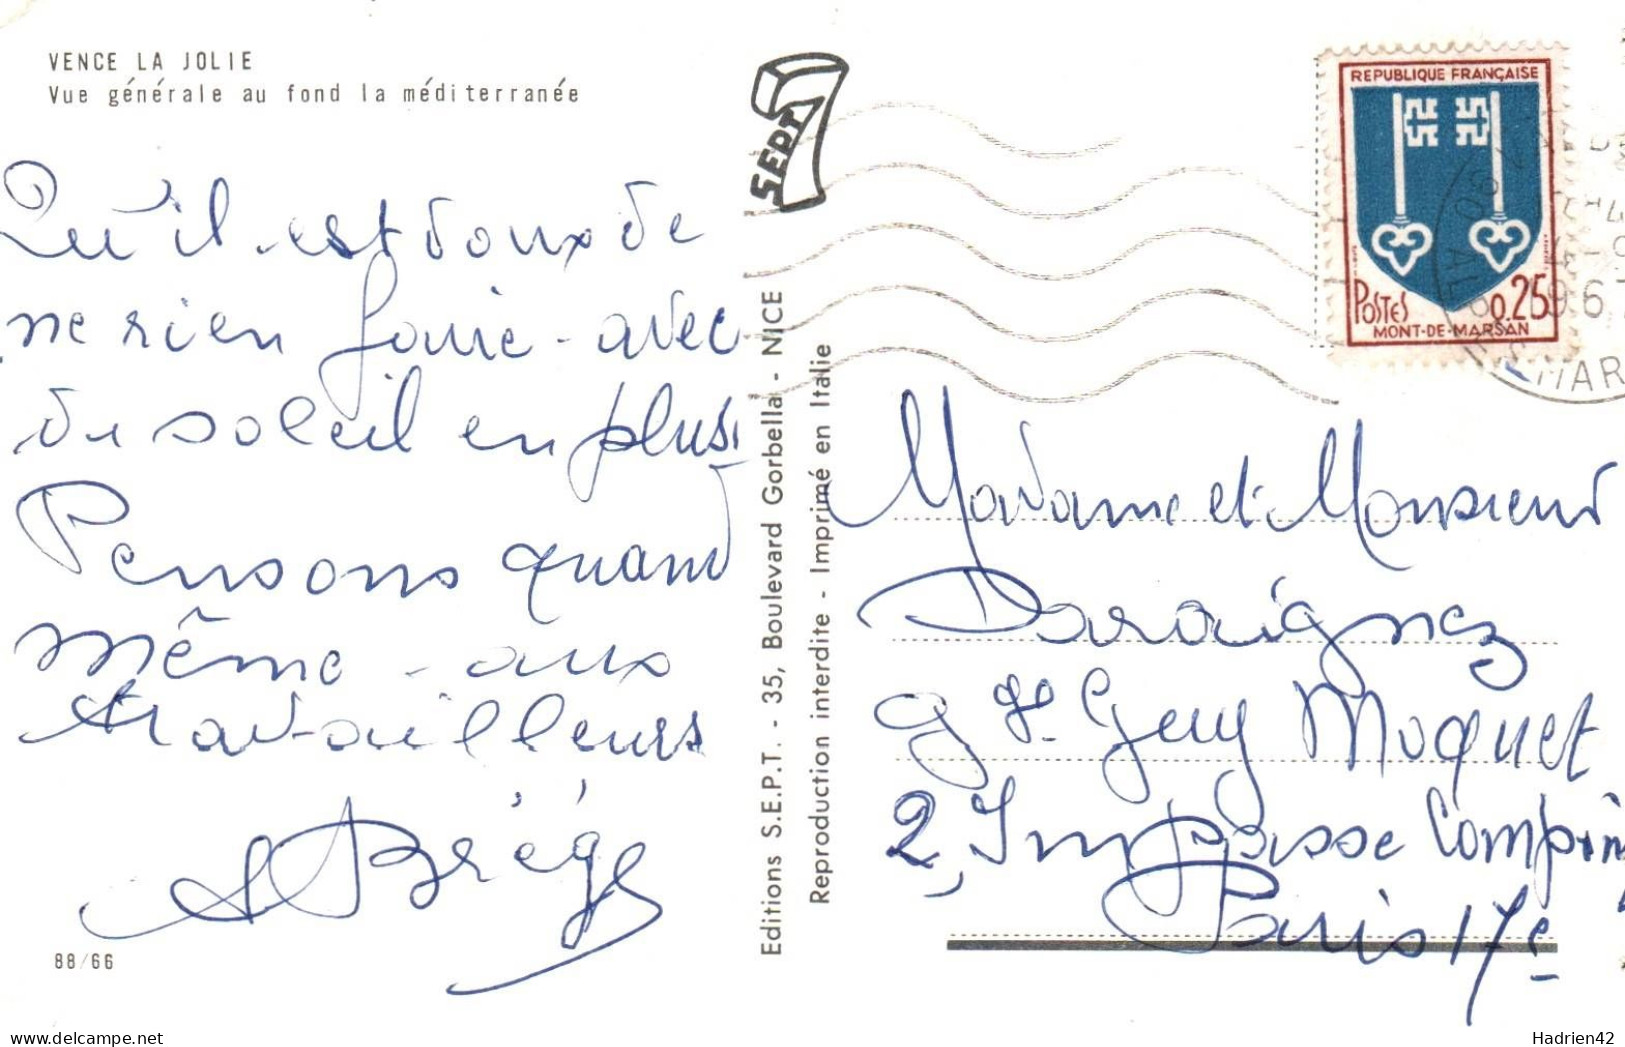 VENCE LA JOLIE
Vue générale au fond la méditerranée
Qu'il est doux de
ne rien faire - avec
du soleil en plus.
Pensons quand
même - aux
travailleurs
88/66
SEPT
7
Editions S.E.P.T. - 35, Boulevard Gorbella - NICE
Reproduction interdite - Imprimé en Italie
REPUBLIQUE FRANÇAISE
POSTES 0.25
MONT-DE-MARSAN
Madame et Monsieur
Daraignez
Guy Moquet
2, Impasse Compoin
Paris 17e
Hadrien42